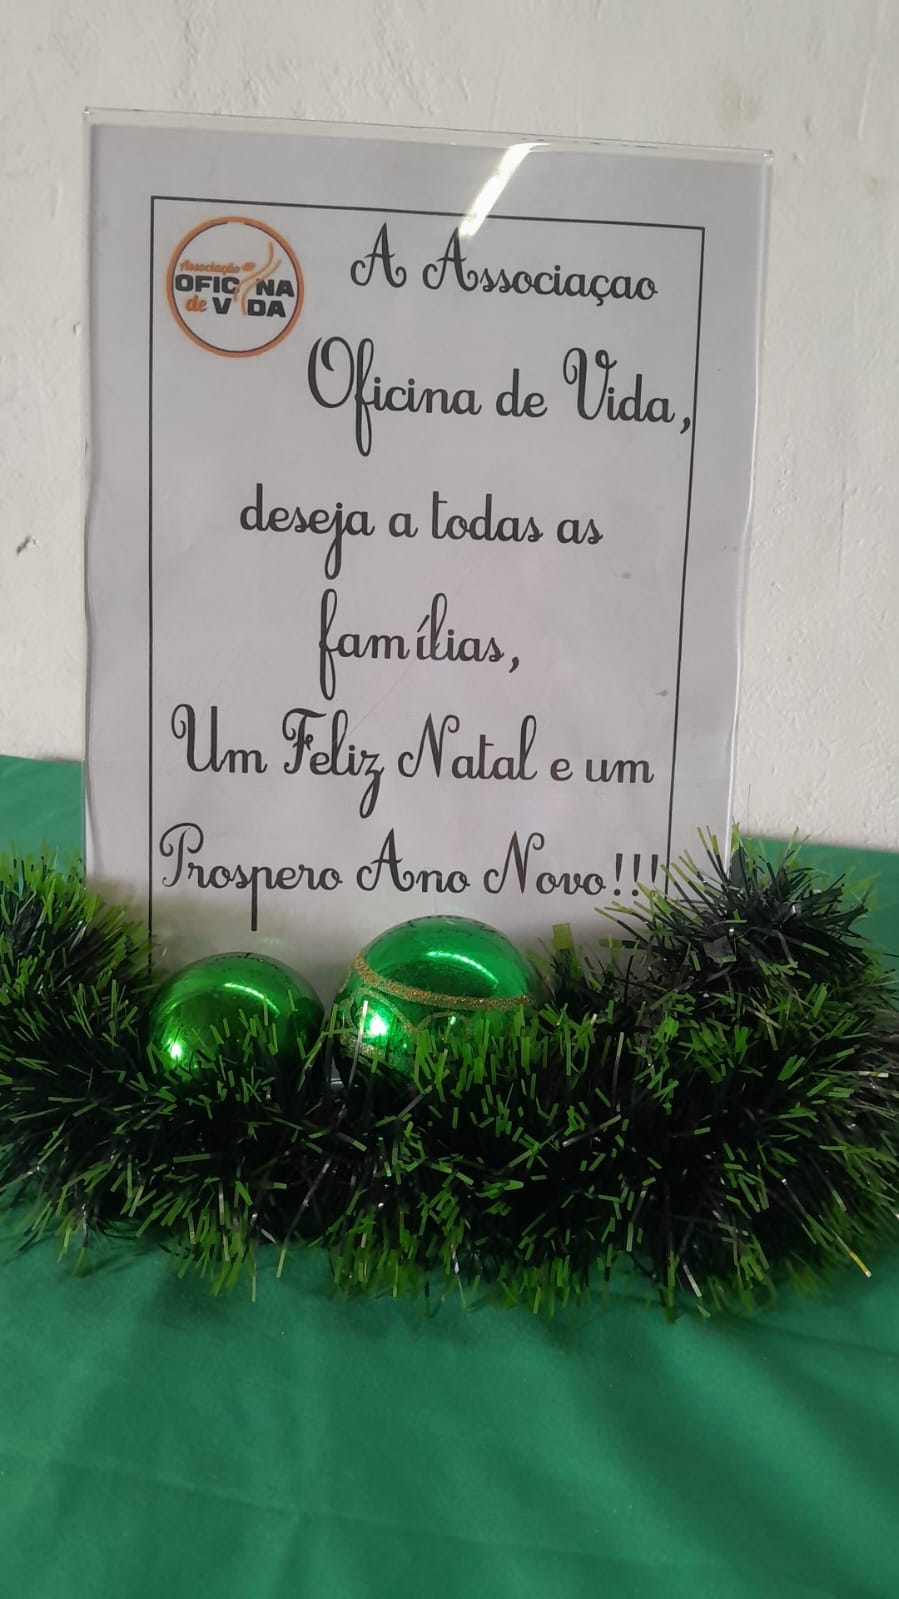 Associação
OFICINA
de VIDA
A Associaçao
Oficina de Vida,
deseja a todas as
famílias,
Um Feliz Natal e um
Prospero Ano Novo!!!